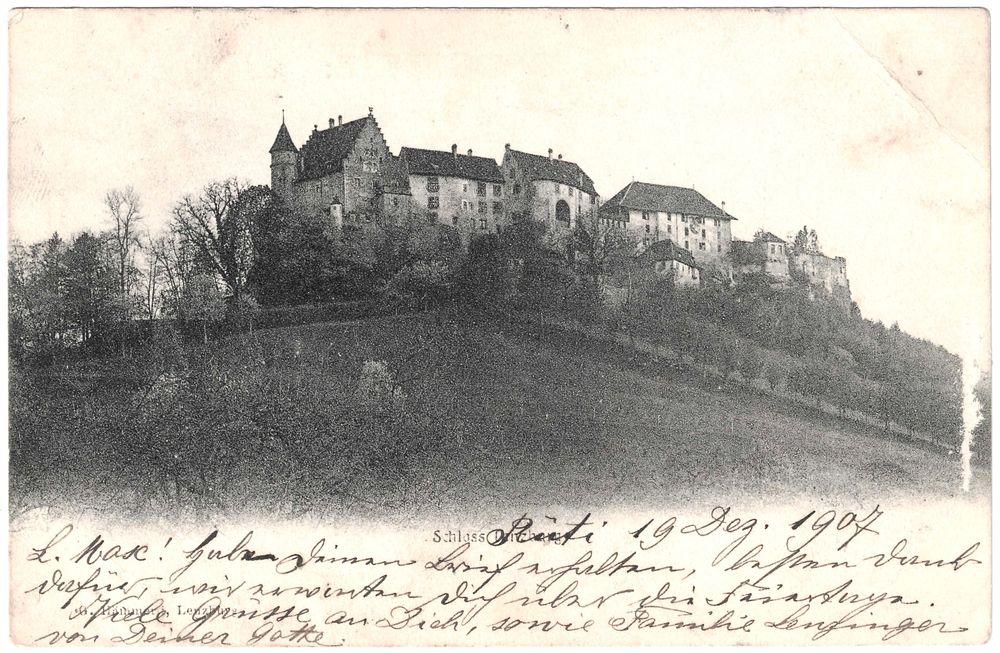 Schloss Lenzburg
Rüti 19 Dez. 1907
L. Max! Habe Deinen Brief erhalten, besten Dank
dafür, wir erwarten Dich über die Feiertage.
G. Hammer, Lenzburg
Viele Grüsse an Dich, sowie Familie Lenzinger
von Deiner Gotte.